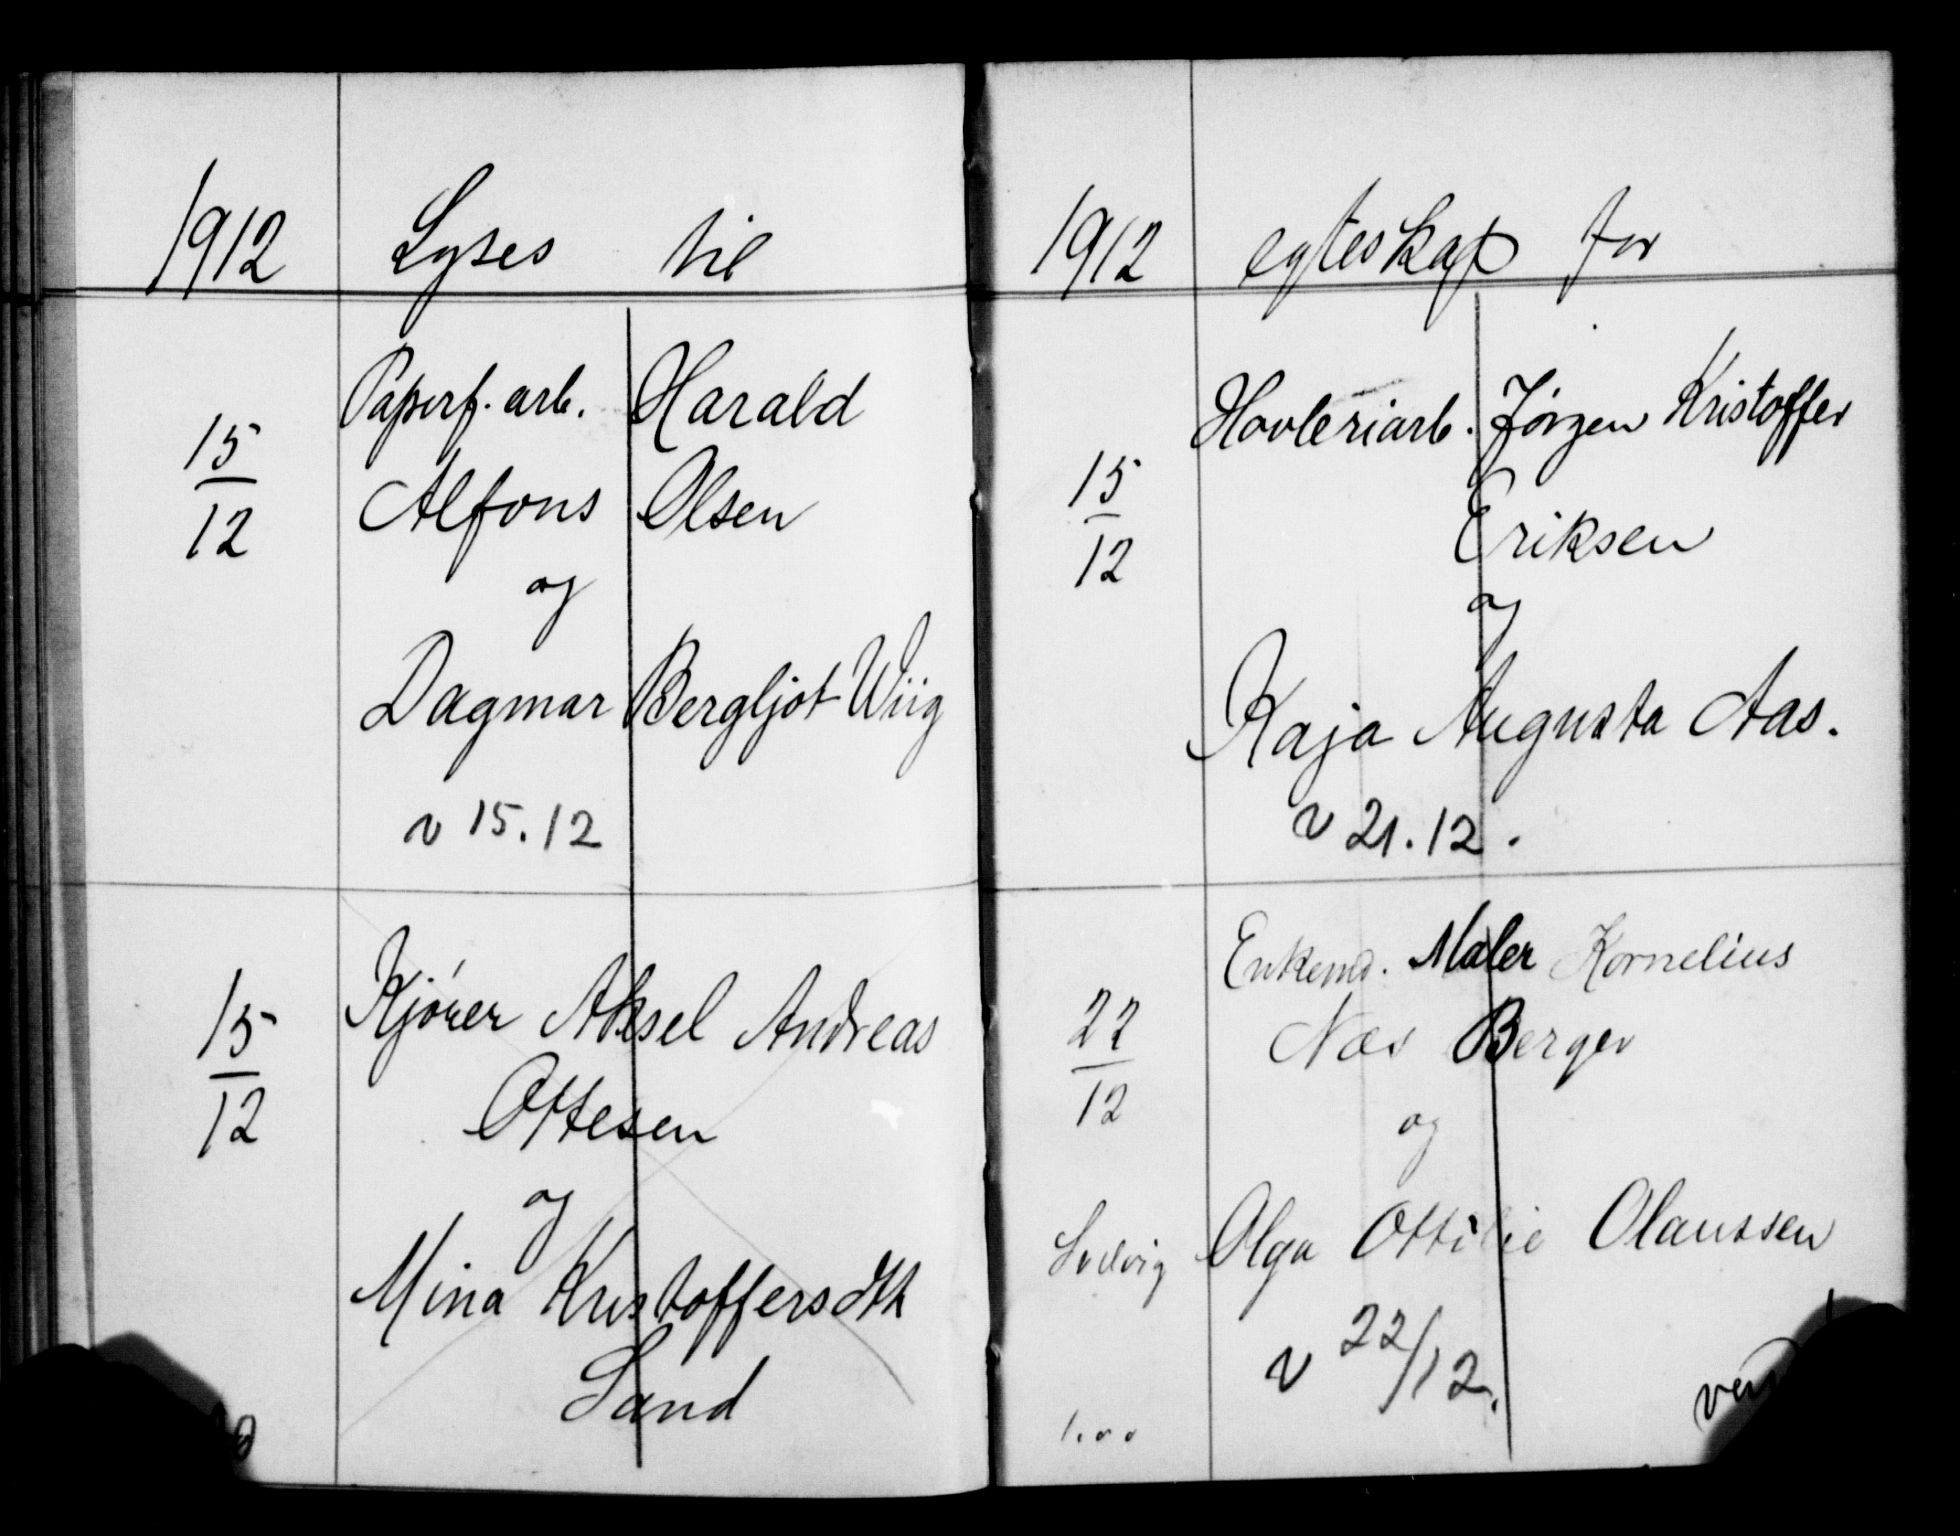 1912 Lyses til
15/12 Papirf. arb. Harald
Alfons Olsen
og
Dagmar Bergljot Wiig
v 15.12
15/12 Kjører Aksel Andreas
Ottesen
og
Mina Kristoffersdtr
Sand
1912 egteskap for
15/12 Høvleriarb. Jørgen Kristoffer
Eriksen
og
Kaja Augusta Aas.
v 21.12.
22/12 Enkemd. Maler Kornelius
Næs Berger
og
Ludvig Olga Ottilie Olaussen
v 22/12.